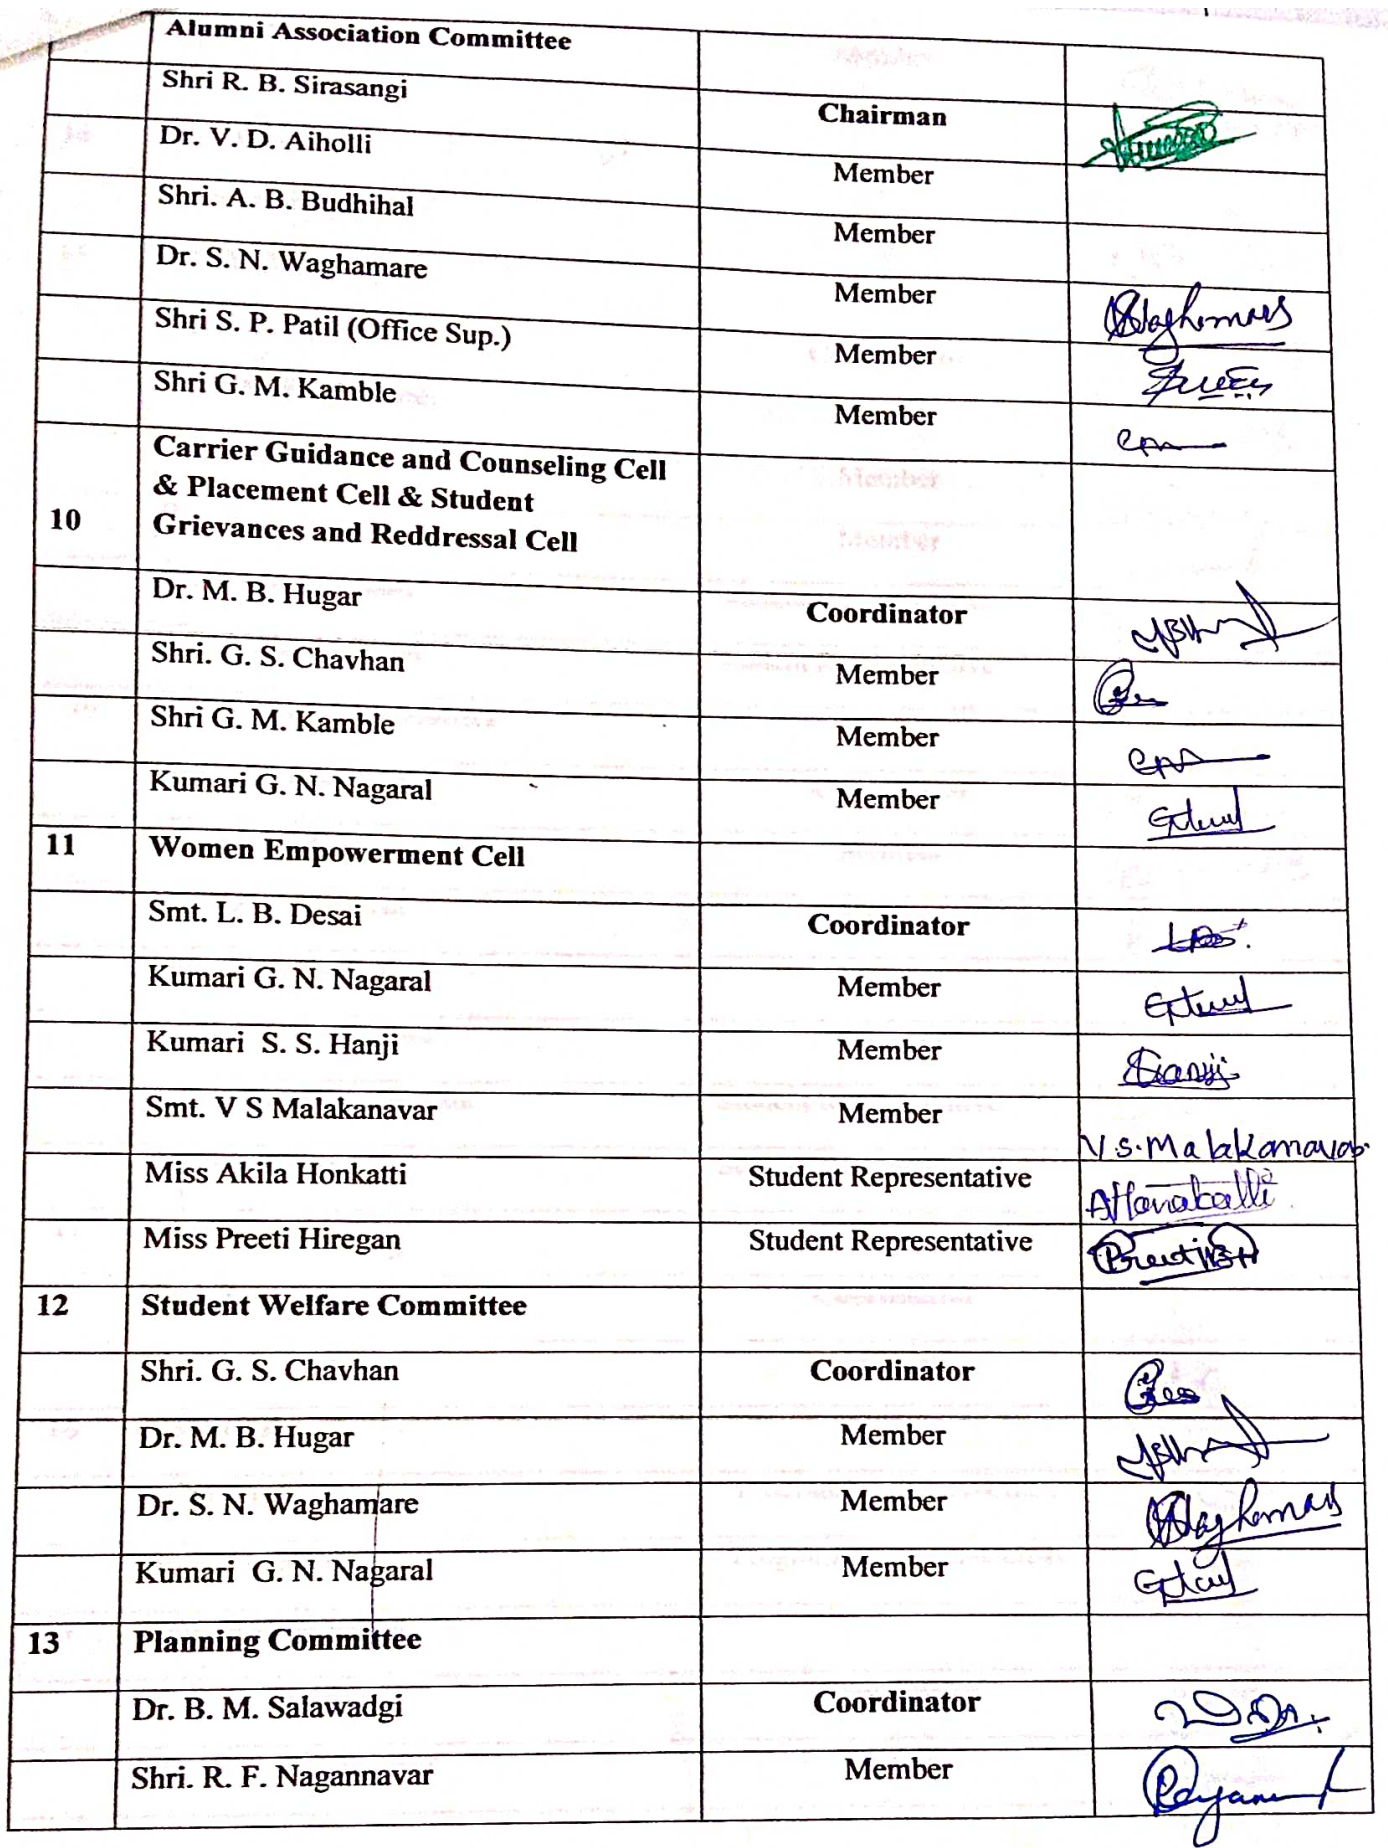 Alumni Association Committee
Shri R. B. Sirasangi Chairman
Dr. V. D. Aiholli Member
Shri. A. B. Budhihal Member
Dr. S. N. Waghamare Member
Shri S. P. Patil (Office Sup.) Member
Shri G. M. Kamble Member
10 Carrier Guidance and Counseling Cell
& Placement Cell & Student
Grievances and Reddressal Cell
Dr. M. B. Hugar Coordinator
Shri. G. S. Chavhan Member
Shri G. M. Kamble Member
Kumari G. N. Nagaral Member
11 Women Empowerment Cell
Smt. L. B. Desai Coordinator
Kumari G. N. Nagaral Member
Kumari S. S. Hanji Member
Smt. V S Malakanavar Member V.S.Malakanavar
Miss Akila Honkatti Student Representative
Miss Preeti Hiregan Student Representative
12 Student Welfare Committee
Shri. G. S. Chavhan Coordinator
Dr. M. B. Hugar Member
Dr. S. N. Waghamare Member
Kumari G. N. Nagaral Member
13 Planning Committee
Dr. B. M. Salawadgi Coordinator
Shri. R. F. Nagannavar Member